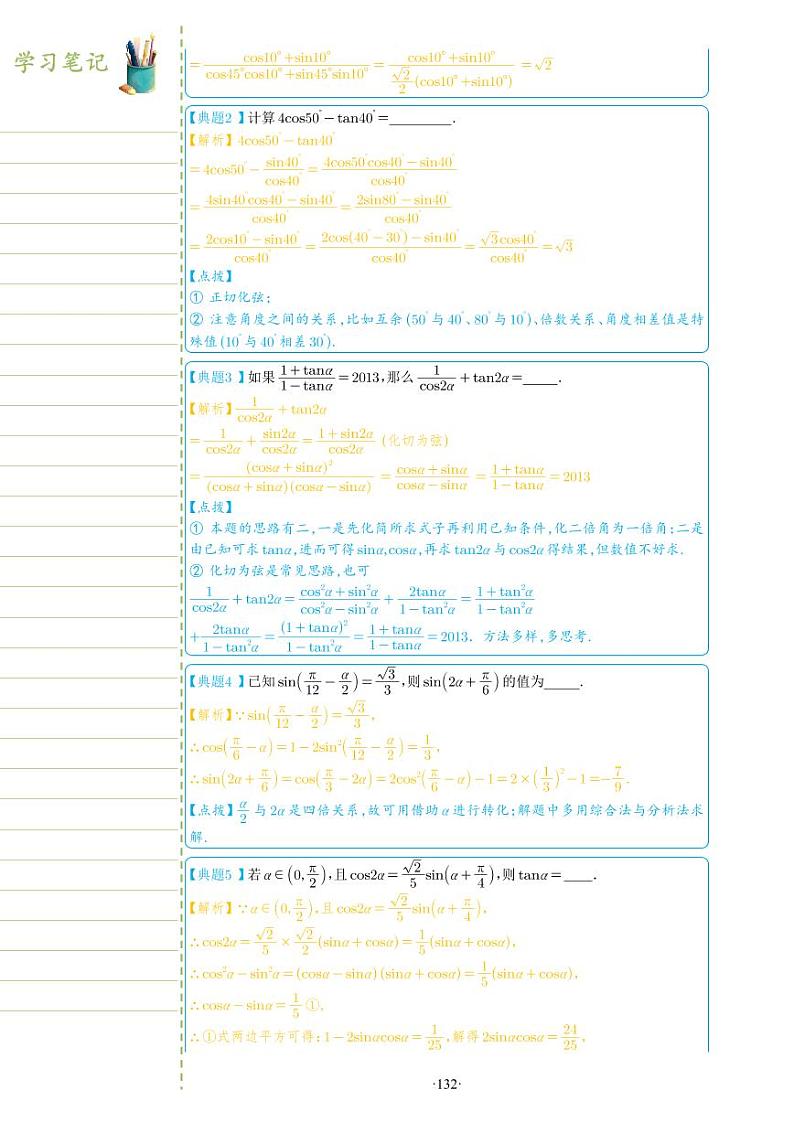 学习笔记
= (cos10°+sin10°)/(cos45°cos10°+sin45°sin10°) = (cos10°+sin10°)/((√2/2)(cos10°+sin10°)) = √2
【典题2 】计算 4cos50° − tan40° = ________ .
【解析】4cos50° − tan40°
= 4cos50° − sin40°/cos40° = (4cos50°cos40° − sin40°)/cos40°
= (4sin40°cos40° − sin40°)/cos40° = (2sin80° − sin40°)/cos40°
= (2cos10° − sin40°)/cos40° = (2cos(40° − 30°) − sin40°)/cos40° = √3cos40°/cos40° = √3
【点拨】
① 正切化弦;
② 注意角度之间的关系,比如互余 (50° 与 40°、80° 与 10°)、倍数关系、角度相差值是特
殊值 (10° 与 40° 相差 30°).
【典题3 】如果 (1+tanα)/(1−tanα) = 2013,那么 1/cos2α + tan2α = _____ .
【解析】1/cos2α + tan2α
= 1/cos2α + sin2α/cos2α = (1+sin2α)/cos2α (化切为弦)
= (cosα+sinα)²/((cosα+sinα)(cosα−sinα)) = (cosα+sinα)/(cosα−sinα) = (1+tanα)/(1−tanα) = 2013
【点拨】
① 本题的思路有二,一是先化简所求式子再利用已知条件,化二倍角为一倍角;二是
由已知可求 tanα,进而可得 sinα,cosα,再求 tan2α 与 cos2α 得结果,但数值不好求.
② 化切为弦是常见思路,也可
1/cos2α + tan2α = (cos²α+sin²α)/(cos²α−sin²α) + 2tanα/(1−tan²α) = (1+tan²α)/(1−tan²α)
+ 2tanα/(1−tan²α) = (1+tanα)²/(1−tan²α) = (1+tanα)/(1−tanα) = 2013. 方法多样,多思考.
【典题4 】已知 sin(π/12 − α/2) = √3/3 ,则 sin(2α + π/6) 的值为_____ .
【解析】∵ sin(π/12 − α/2) = √3/3 ,
∴ cos(π/6 − α) = 1 − 2sin²(π/12 − α/2) = 1/3 ,
∴ sin(2α + π/6) = cos(π/3 − 2α) = 2cos²(π/6 − α) − 1 = 2 × (1/3)² − 1 = −7/9 .
【点拨】α/2 与 2α 是四倍关系,故可用借助 α 进行转化;解题中多用综合法与分析法求
解.
【典题5 】若 α ∈ (0, π/2),且 cos2α = (√2/5)sin(α + π/4),则 tanα = ____ .
【解析】∵ α ∈ (0, π/2),且 cos2α = (√2/5)sin(α + π/4),
∴ cos2α = √2/5 × √2/2 (sinα + cosα) = 1/5 (sinα + cosα),
∴ cos²α − sin²α = (cosα − sinα)(sinα + cosα) = 1/5 (sinα + cosα),
∴ cosα − sinα = 1/5 ①,
∴ ①式两边平方可得: 1 − 2sinαcosα = 1/25 ,解得 2sinαcosα = 24/25 ,
·132·